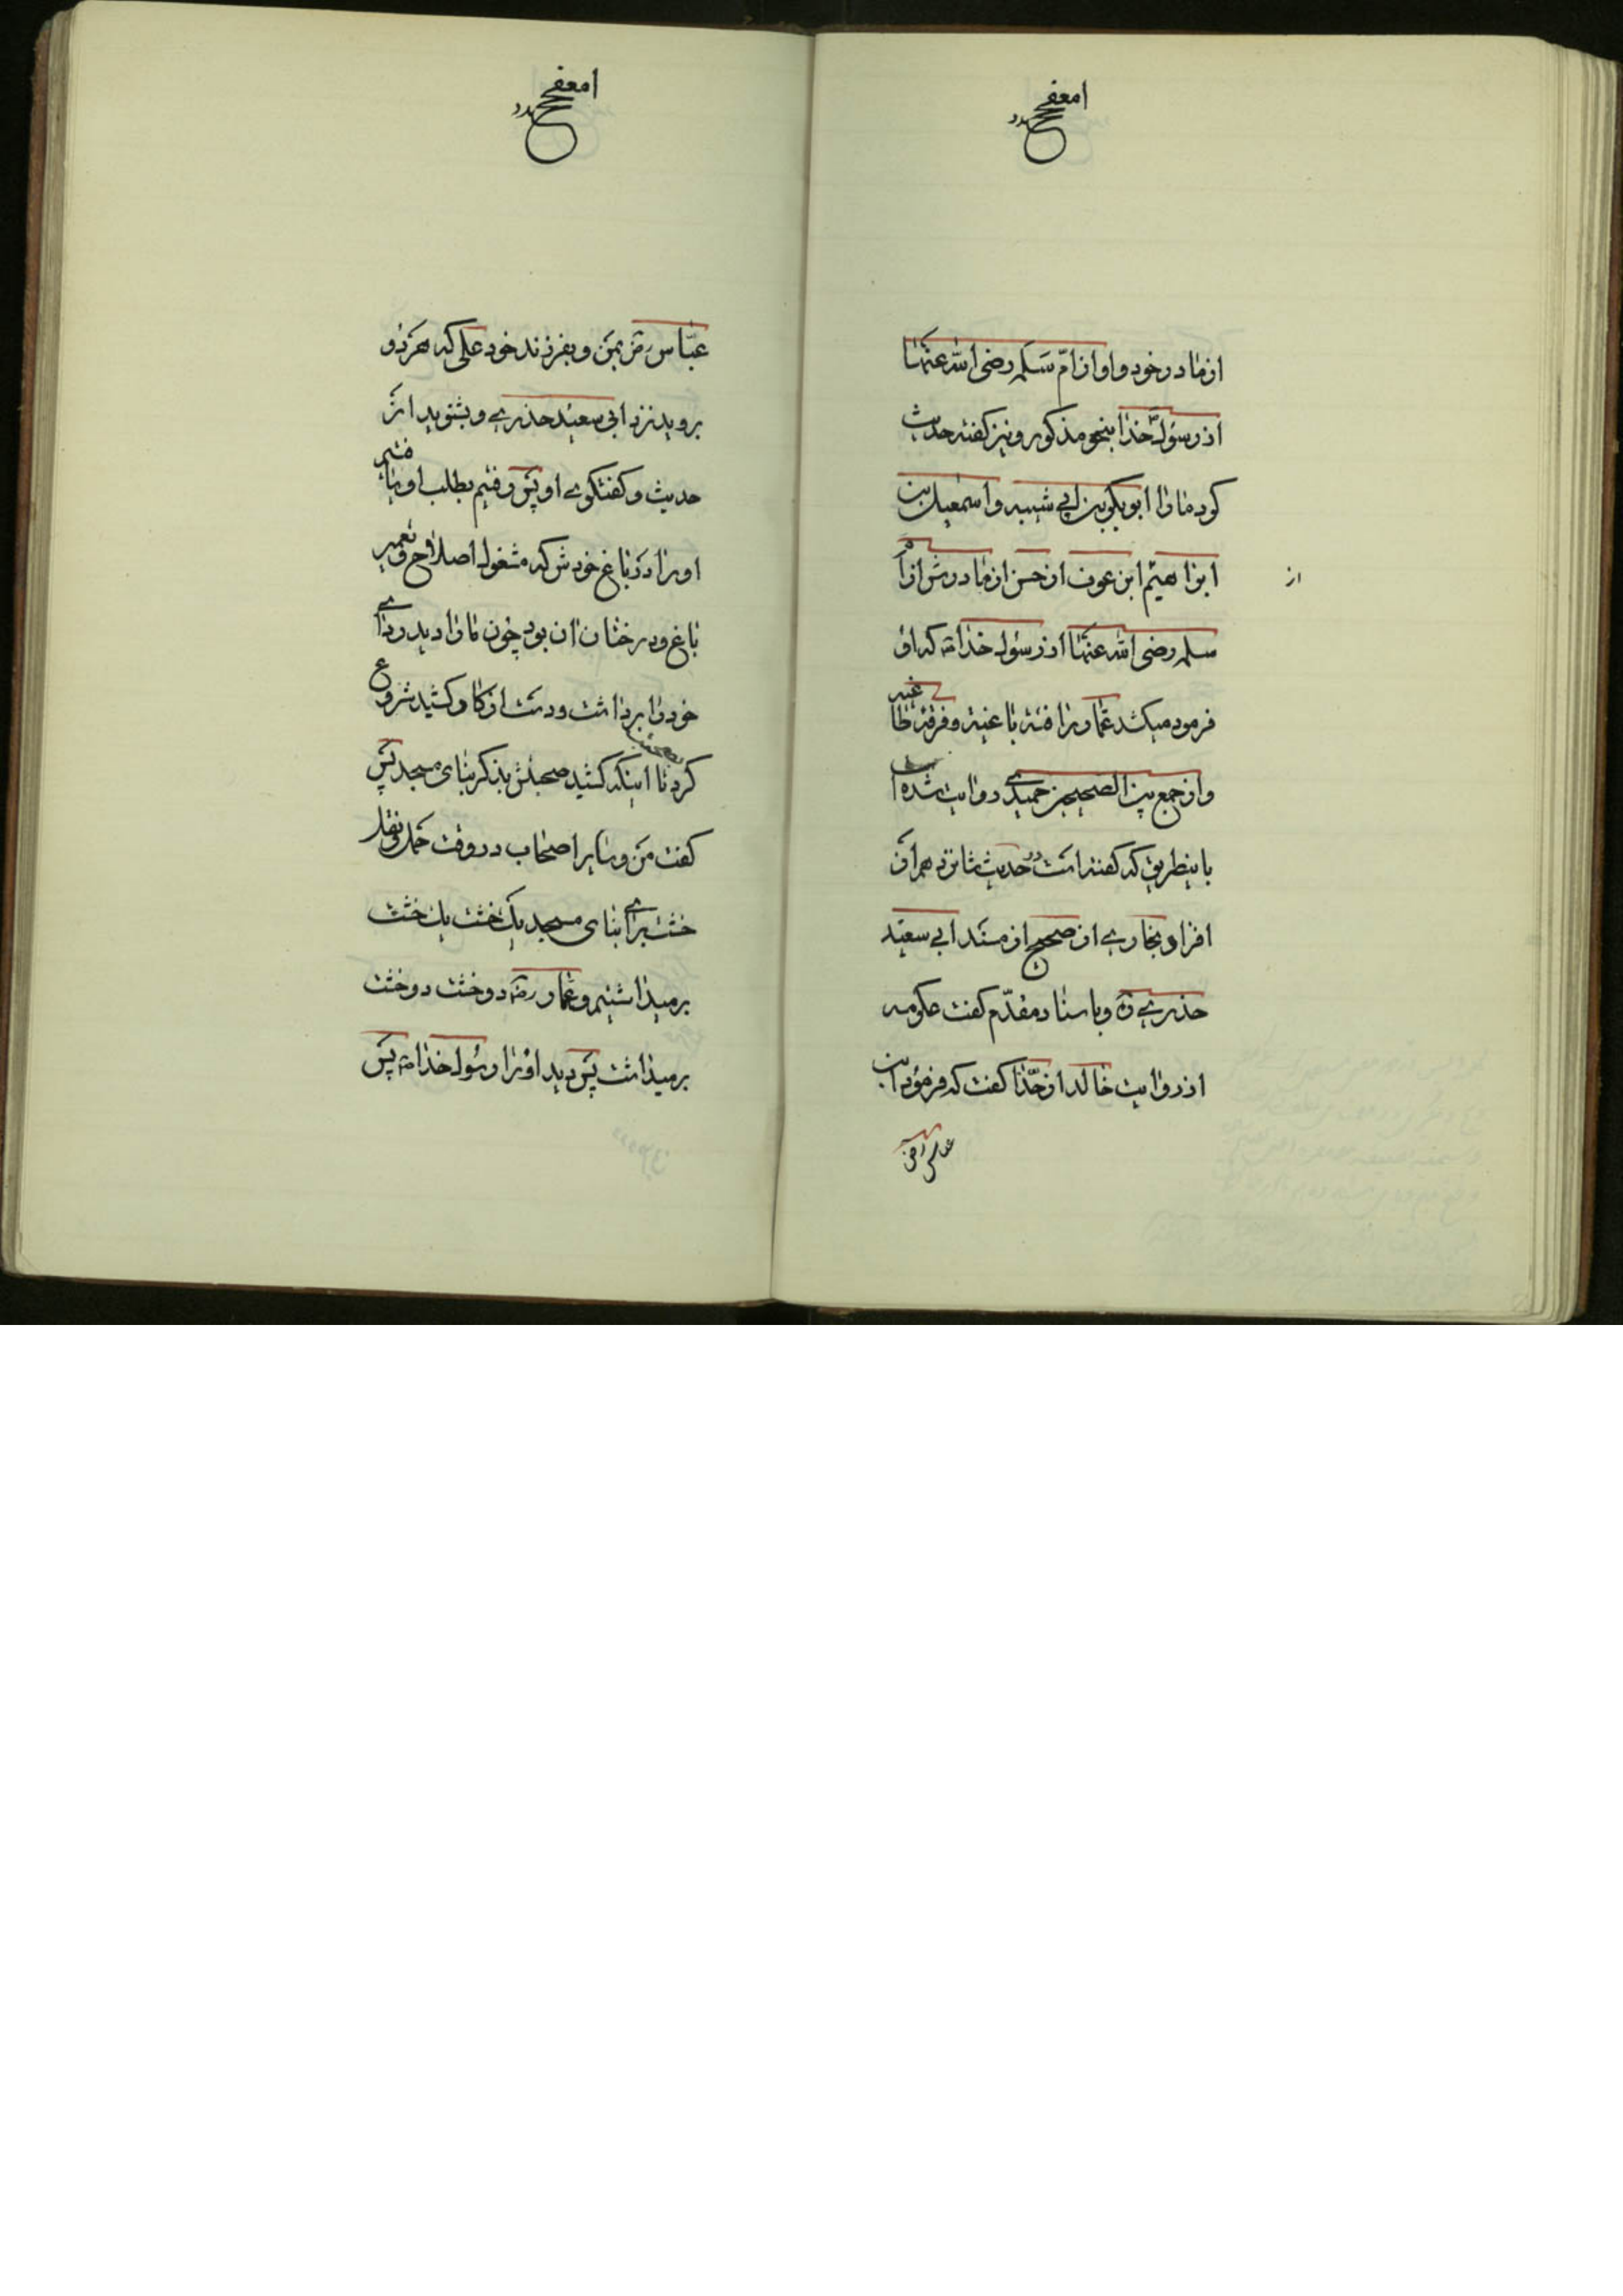 از مادر خود و او از امّ سلمه رضی الله عنها
از رسول خدا بنحو مذکور و نیز کفته حدیث
کرد ما را ابو بکر بن ابی شیبه و اسمعیل بن
ابراهیم ابن عون از حسن از مادرش از امّ
از
سلمه رضی الله عنها از رسول خدا که او
فرمود میکشد عمار را فئة باغیة و فرقه ظاغیه
و از جمع بین الصحیحین حمیدی روایت شده است
باینطریق که کفته است در حدیث شانزدهم از
افراد بخاری از صحیح از مسند ابی سعید
حذری و باسناد مقدّم کفت عکرمه
از روایت خالد از حذّا کفت که فرمود ابن
عباس رض
عبّاس رض بمن و بفرزند خود علی که هر دو
بروید نزد ابی سعید حذری و بشنوید از
حدیث و کفتکوی او پس رفتیم بطلب او یافتیم
او را در باغ خودش که مشغول اصلاح و تعمیر
باغ و درختان ان بود چون ما را دید ردای
خود را برداشت و دست از کار کشید شروع
کرد تا اینکه کشید صحبتش بذکر بنای مسجد پس
کفت من و سایر اصحاب در وقت حمل و نقل
خشت برای بنای مسجد یک خشت یک خشت
برمیداشتیم و عمار رض دو خشت دو خشت
برمیداشت پس دید او را رسول خدا پس